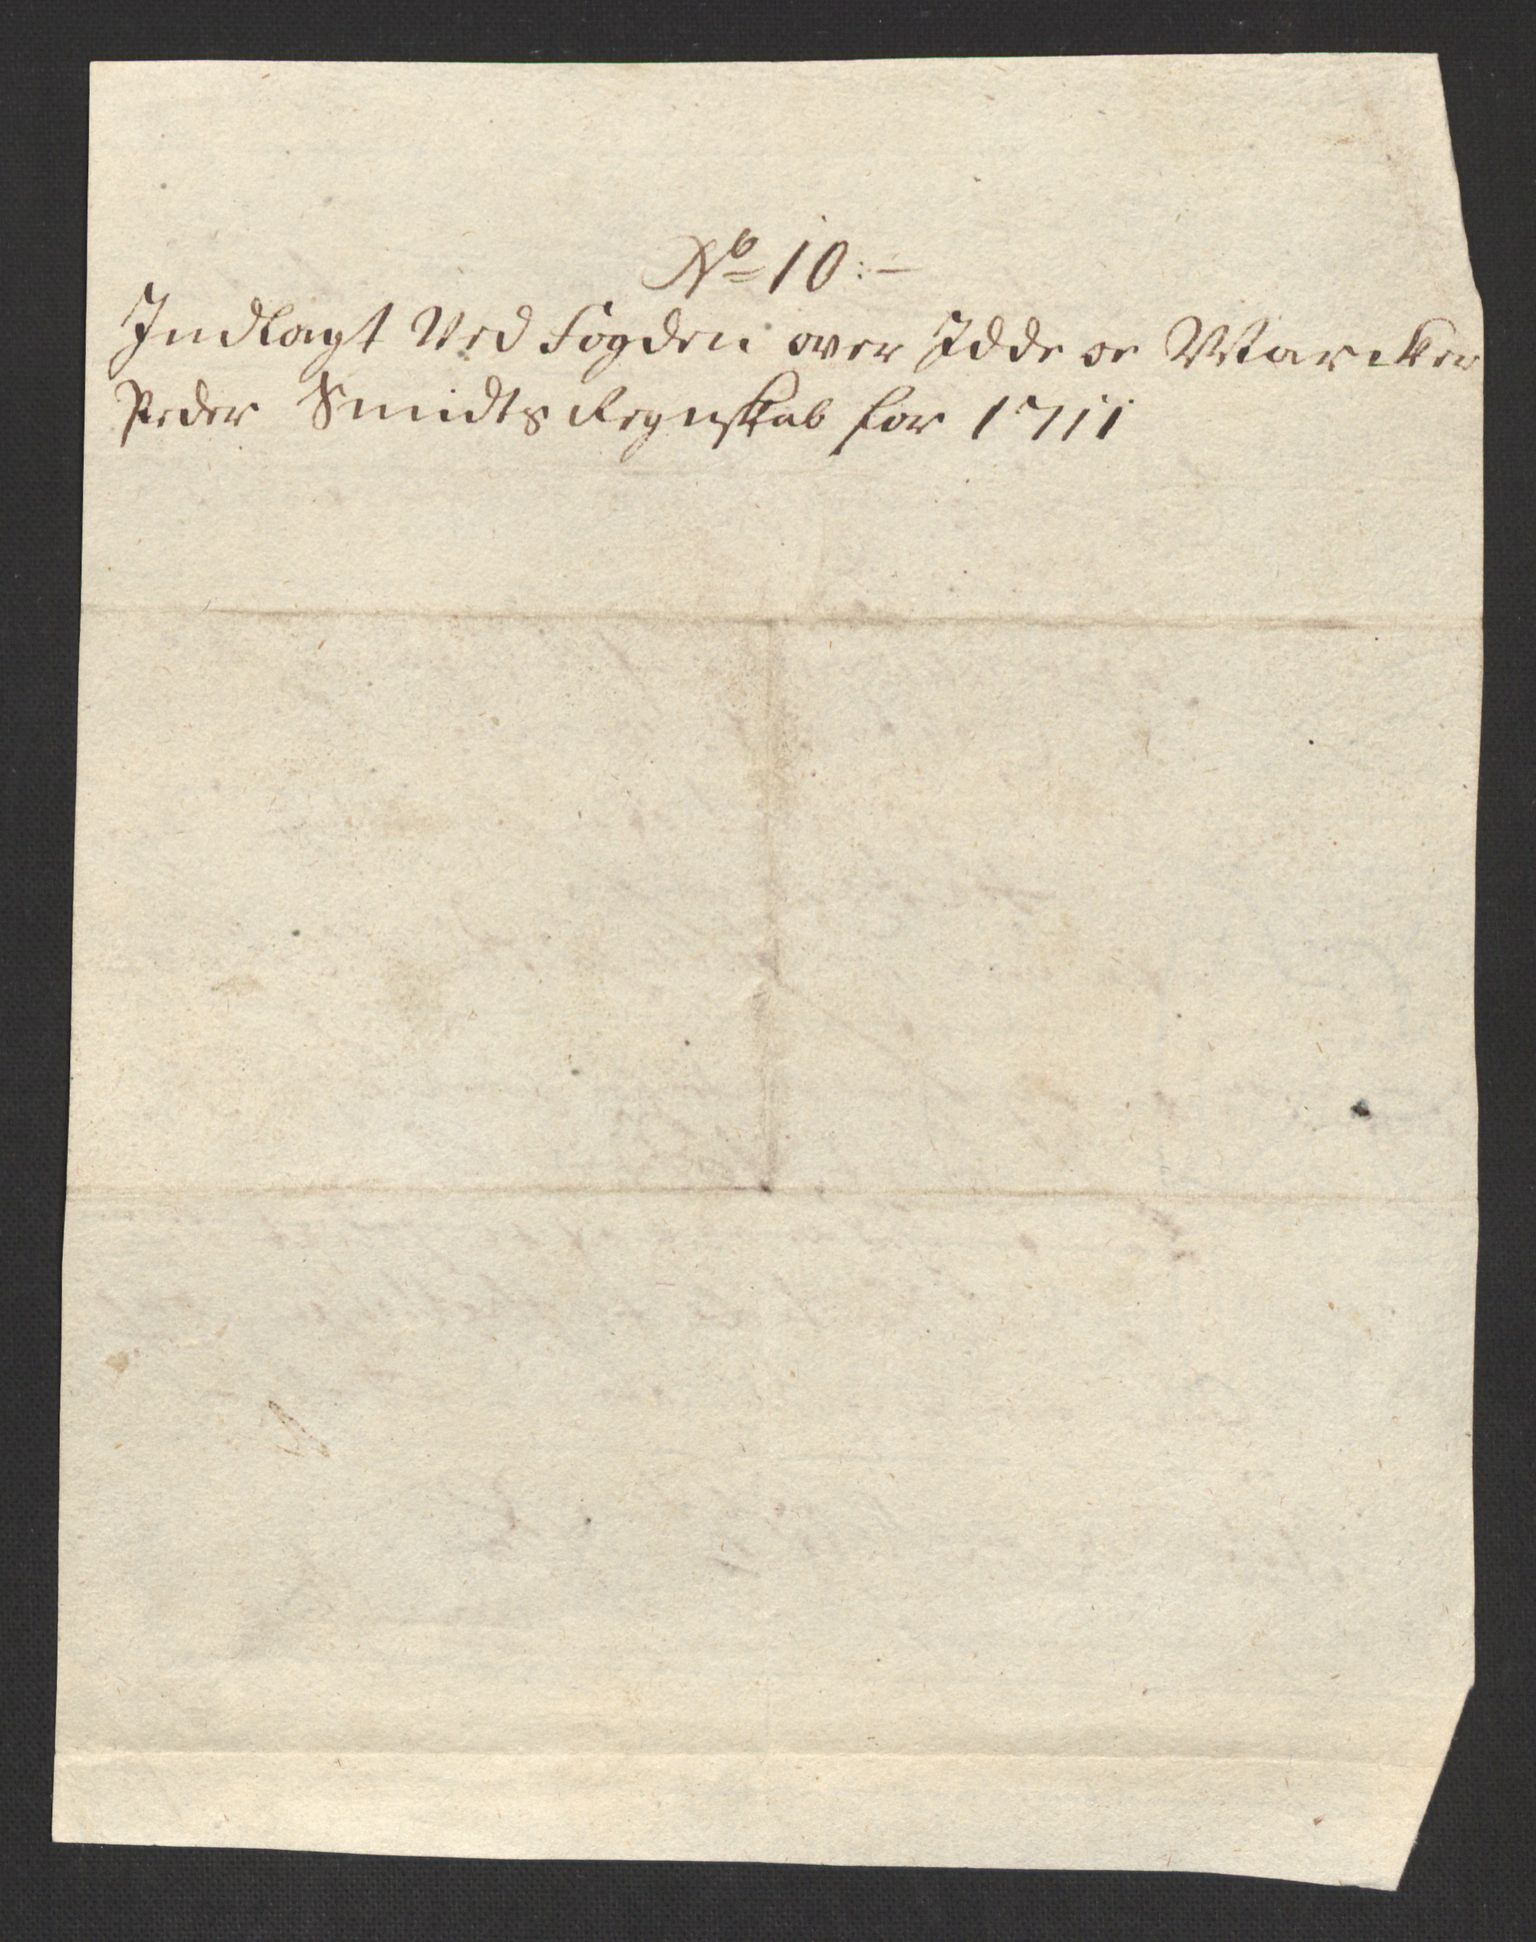 No 10:-
Indlagt Ved Fogden over Idde oc Marcker
Peder Smidts Regnskab for 1711